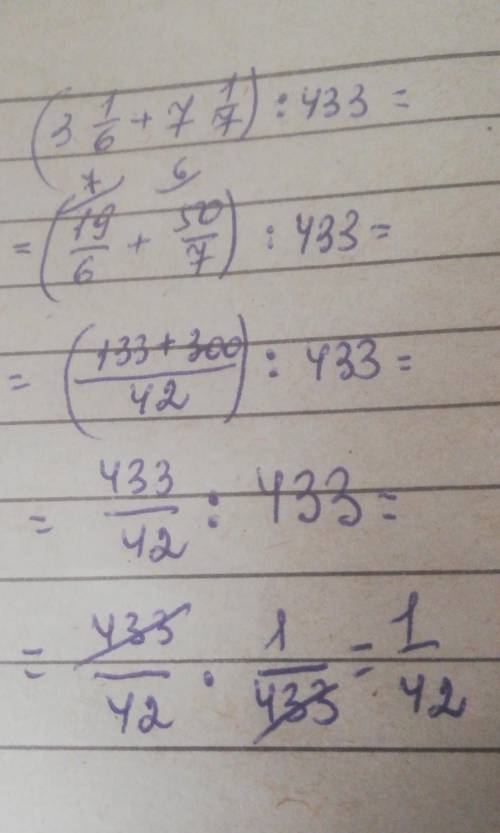 (3 1/6 + 7 1/7) : 433 =
7 6
= (19/6 + 50/7) : 433 =
= ((133 + 300)/42) : 433 =
= 433/42 : 433 =
= 433/42 · 1/433 = 1/42